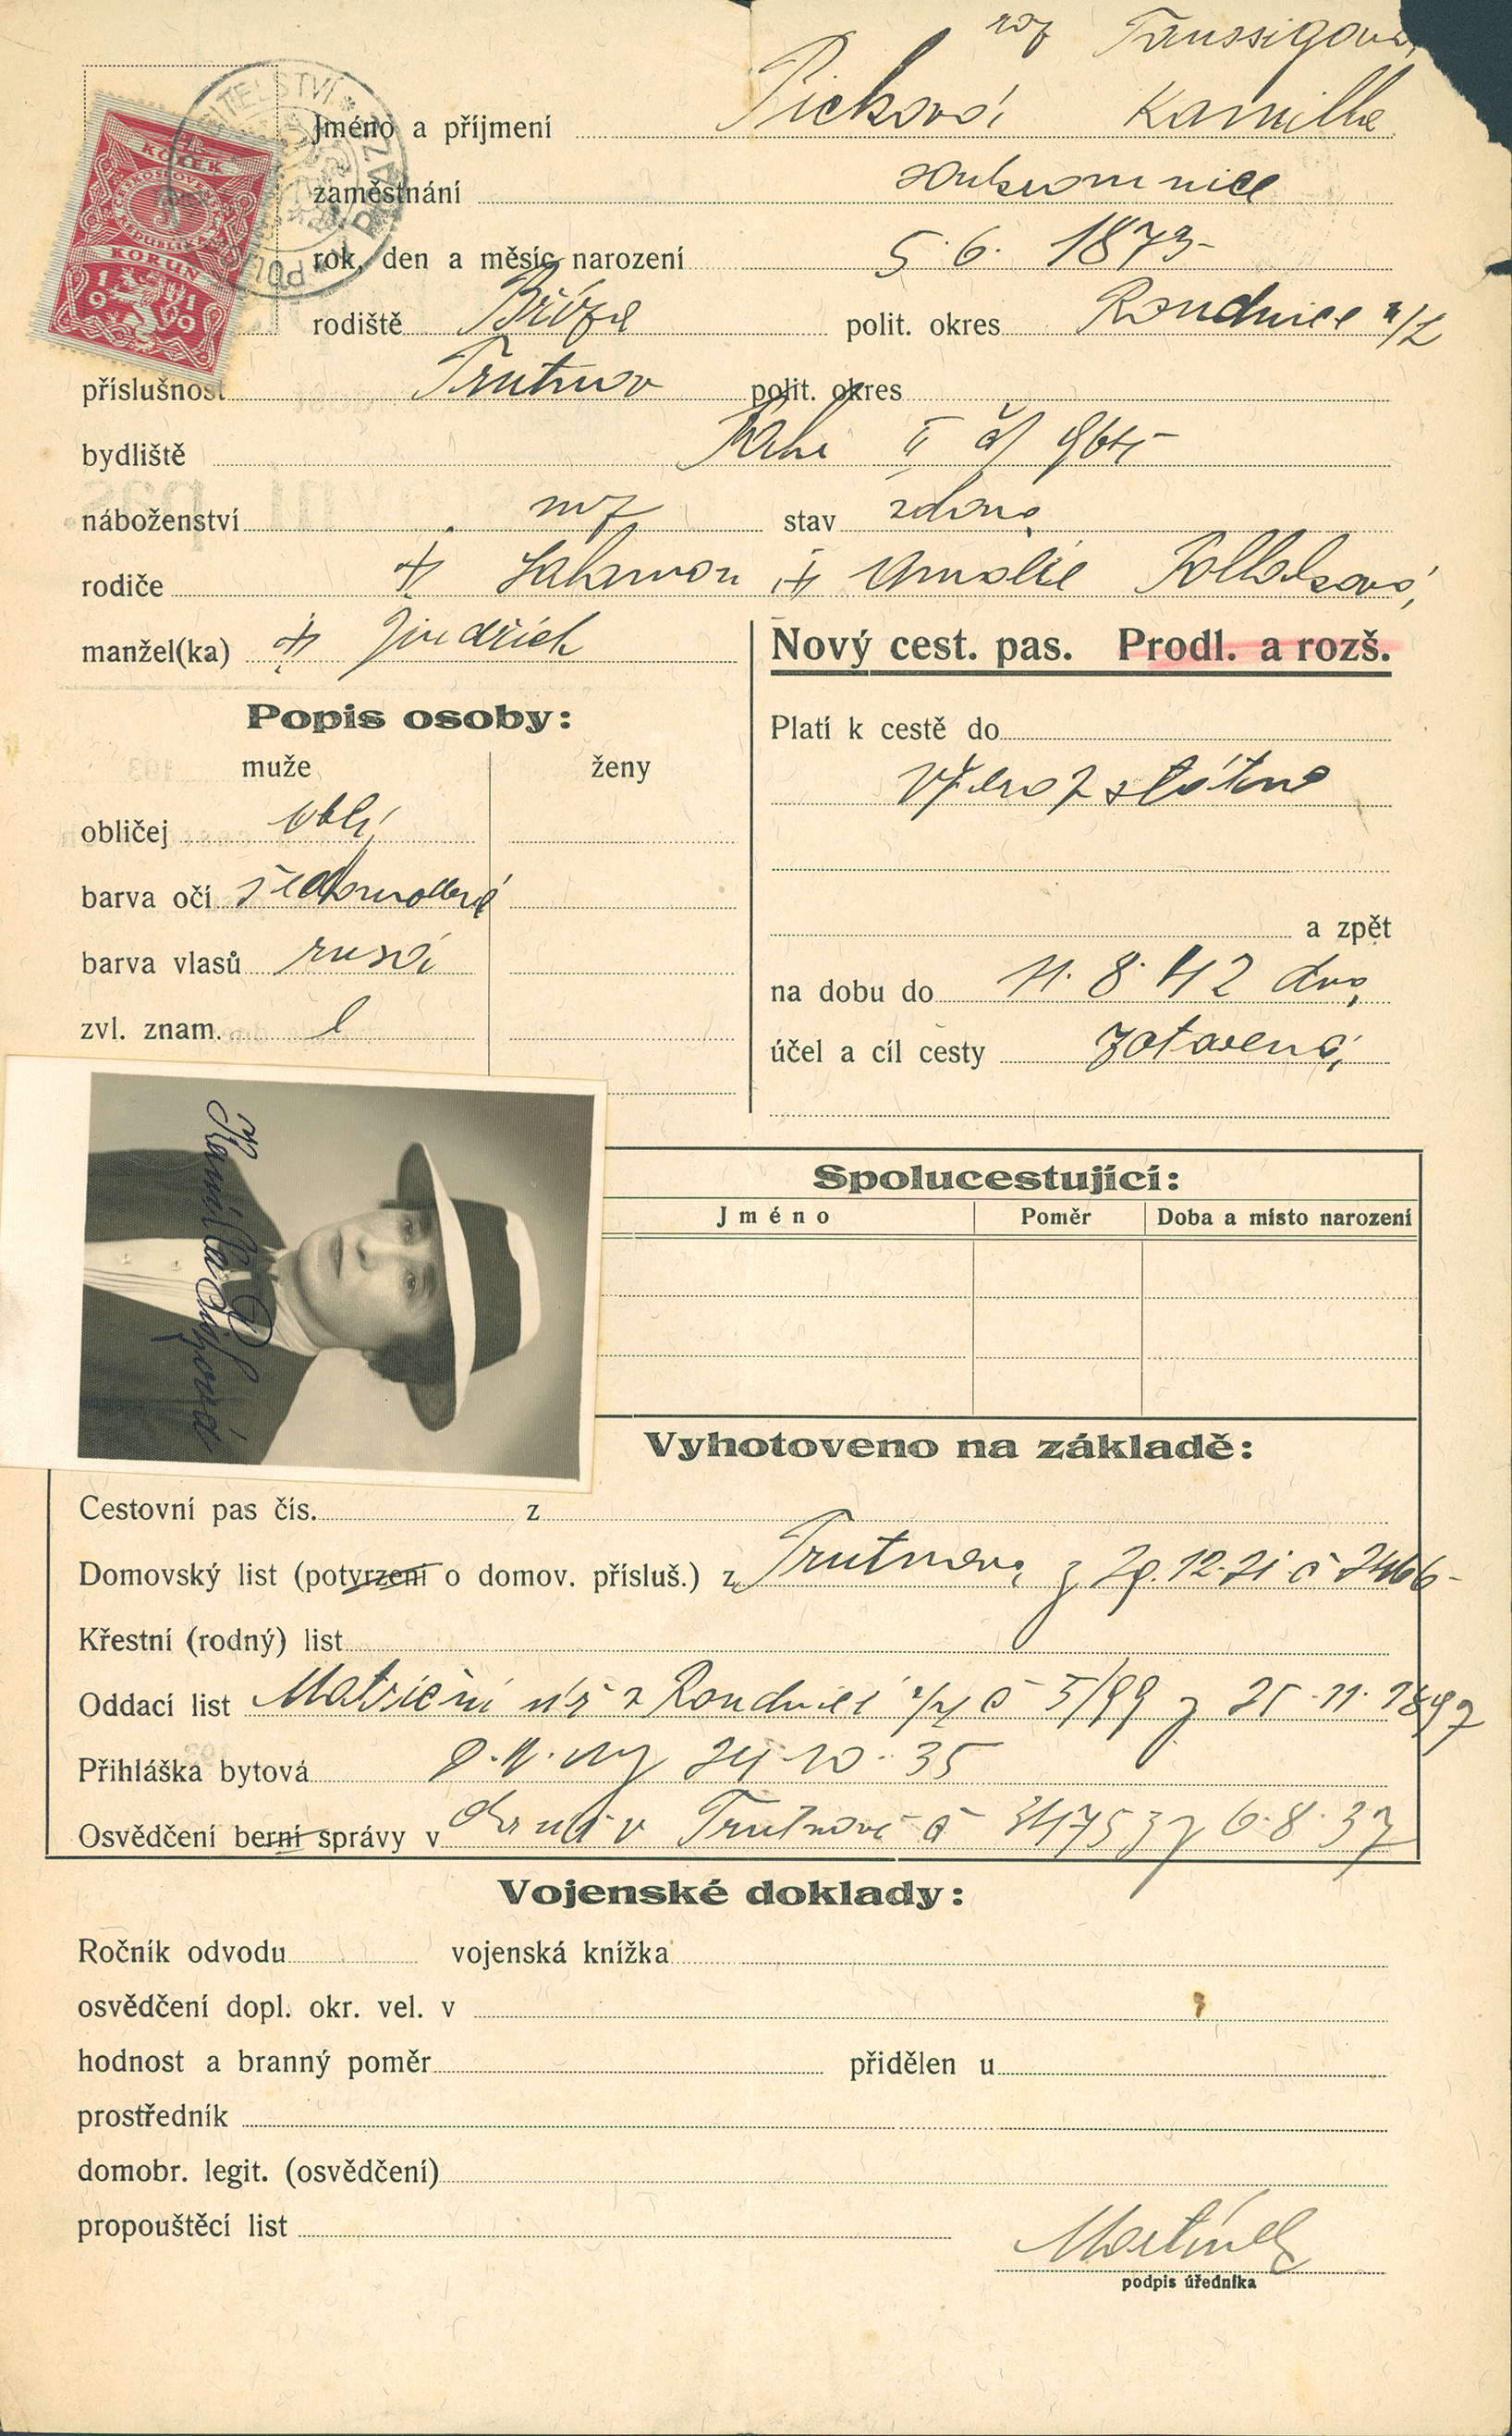 roz Taussigová
Jméno a příjmení Picková Kamilla
KOLEK
KORUN
1919
ITELSTVÍ * PRAZE * POL
zaměstnání soukromnice
rok, den a měsíc narození 5. 6. 1873
rodiště Bříza polit. okres Roudnice n/L
příslušnost Trutnov polit. okres
bydliště Praha II čp
náboženství moz stav vdova
rodiče + Salamon + Amalie
manžel(ka) + Jindřich
Nový cest. pas. Prodl. a rozš.
Popis osoby:
muže ženy
Platí k cestě do
státnou
obličej oblý
barva očí šedomodré
barva vlasů rusá
zvl. znam.
a zpět
na dobu do 11. 8. 42
účel a cíl cesty zotavená
Kamilla Picková
Spolucestující:
Jméno Poměr Doba a místo narození
Vyhotoveno na základě:
Cestovní pas čís. z
Domovský list (potvrzení o domov. přísluš.) z Trutnova z 29. 12. 21 č 2466
Křestní (rodný) list
Oddací list Matriční úř z Roudnice n/L č 5/99 z 25. 11. 1897
Přihláška bytová 24. 10. 35
Osvědčení berní správy v Trutnově č 31753 z 6. 8. 37
Vojenské doklady:
Ročník odvodu vojenská knížka
osvědčení dopl. okr. vel. v
hodnost a branný poměr přidělen u
prostředník
domobr. legit. (osvědčení)
propouštěcí list
Martínek
podpis úředníka